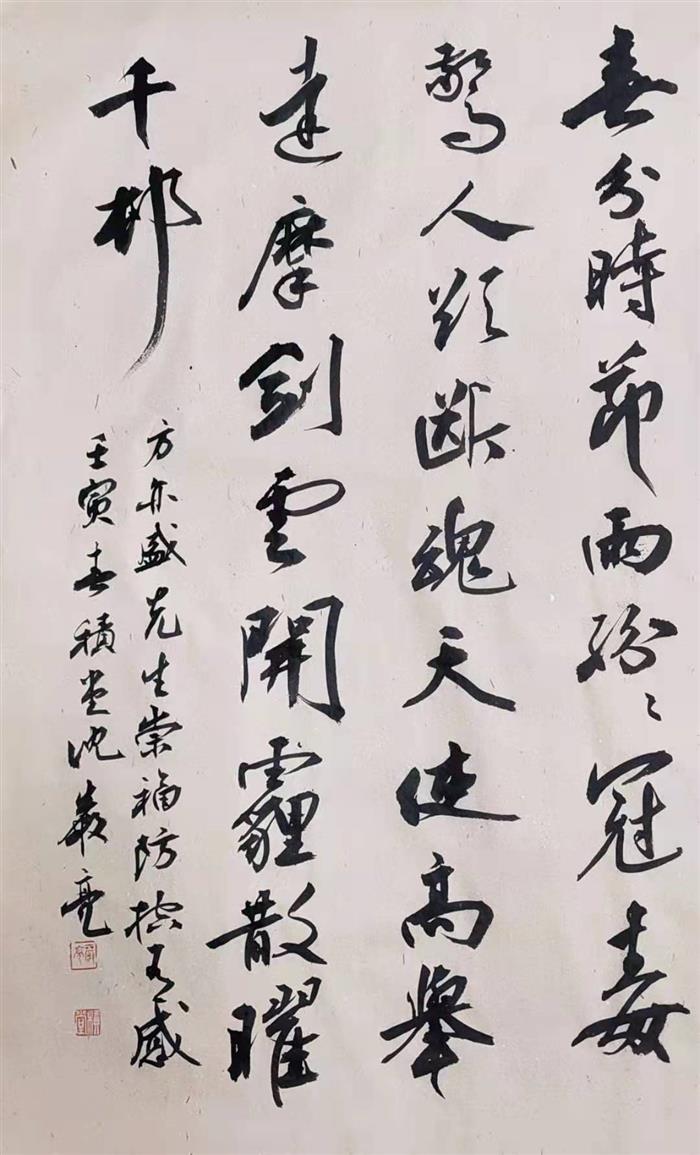 春分時節雨紛〻冠毒
驚人欲斷魂天使高舉
達摩劍雲開霾散曜
千邨
方亦盛先生崇福防控有感
壬寅春積堂沈嚴亮